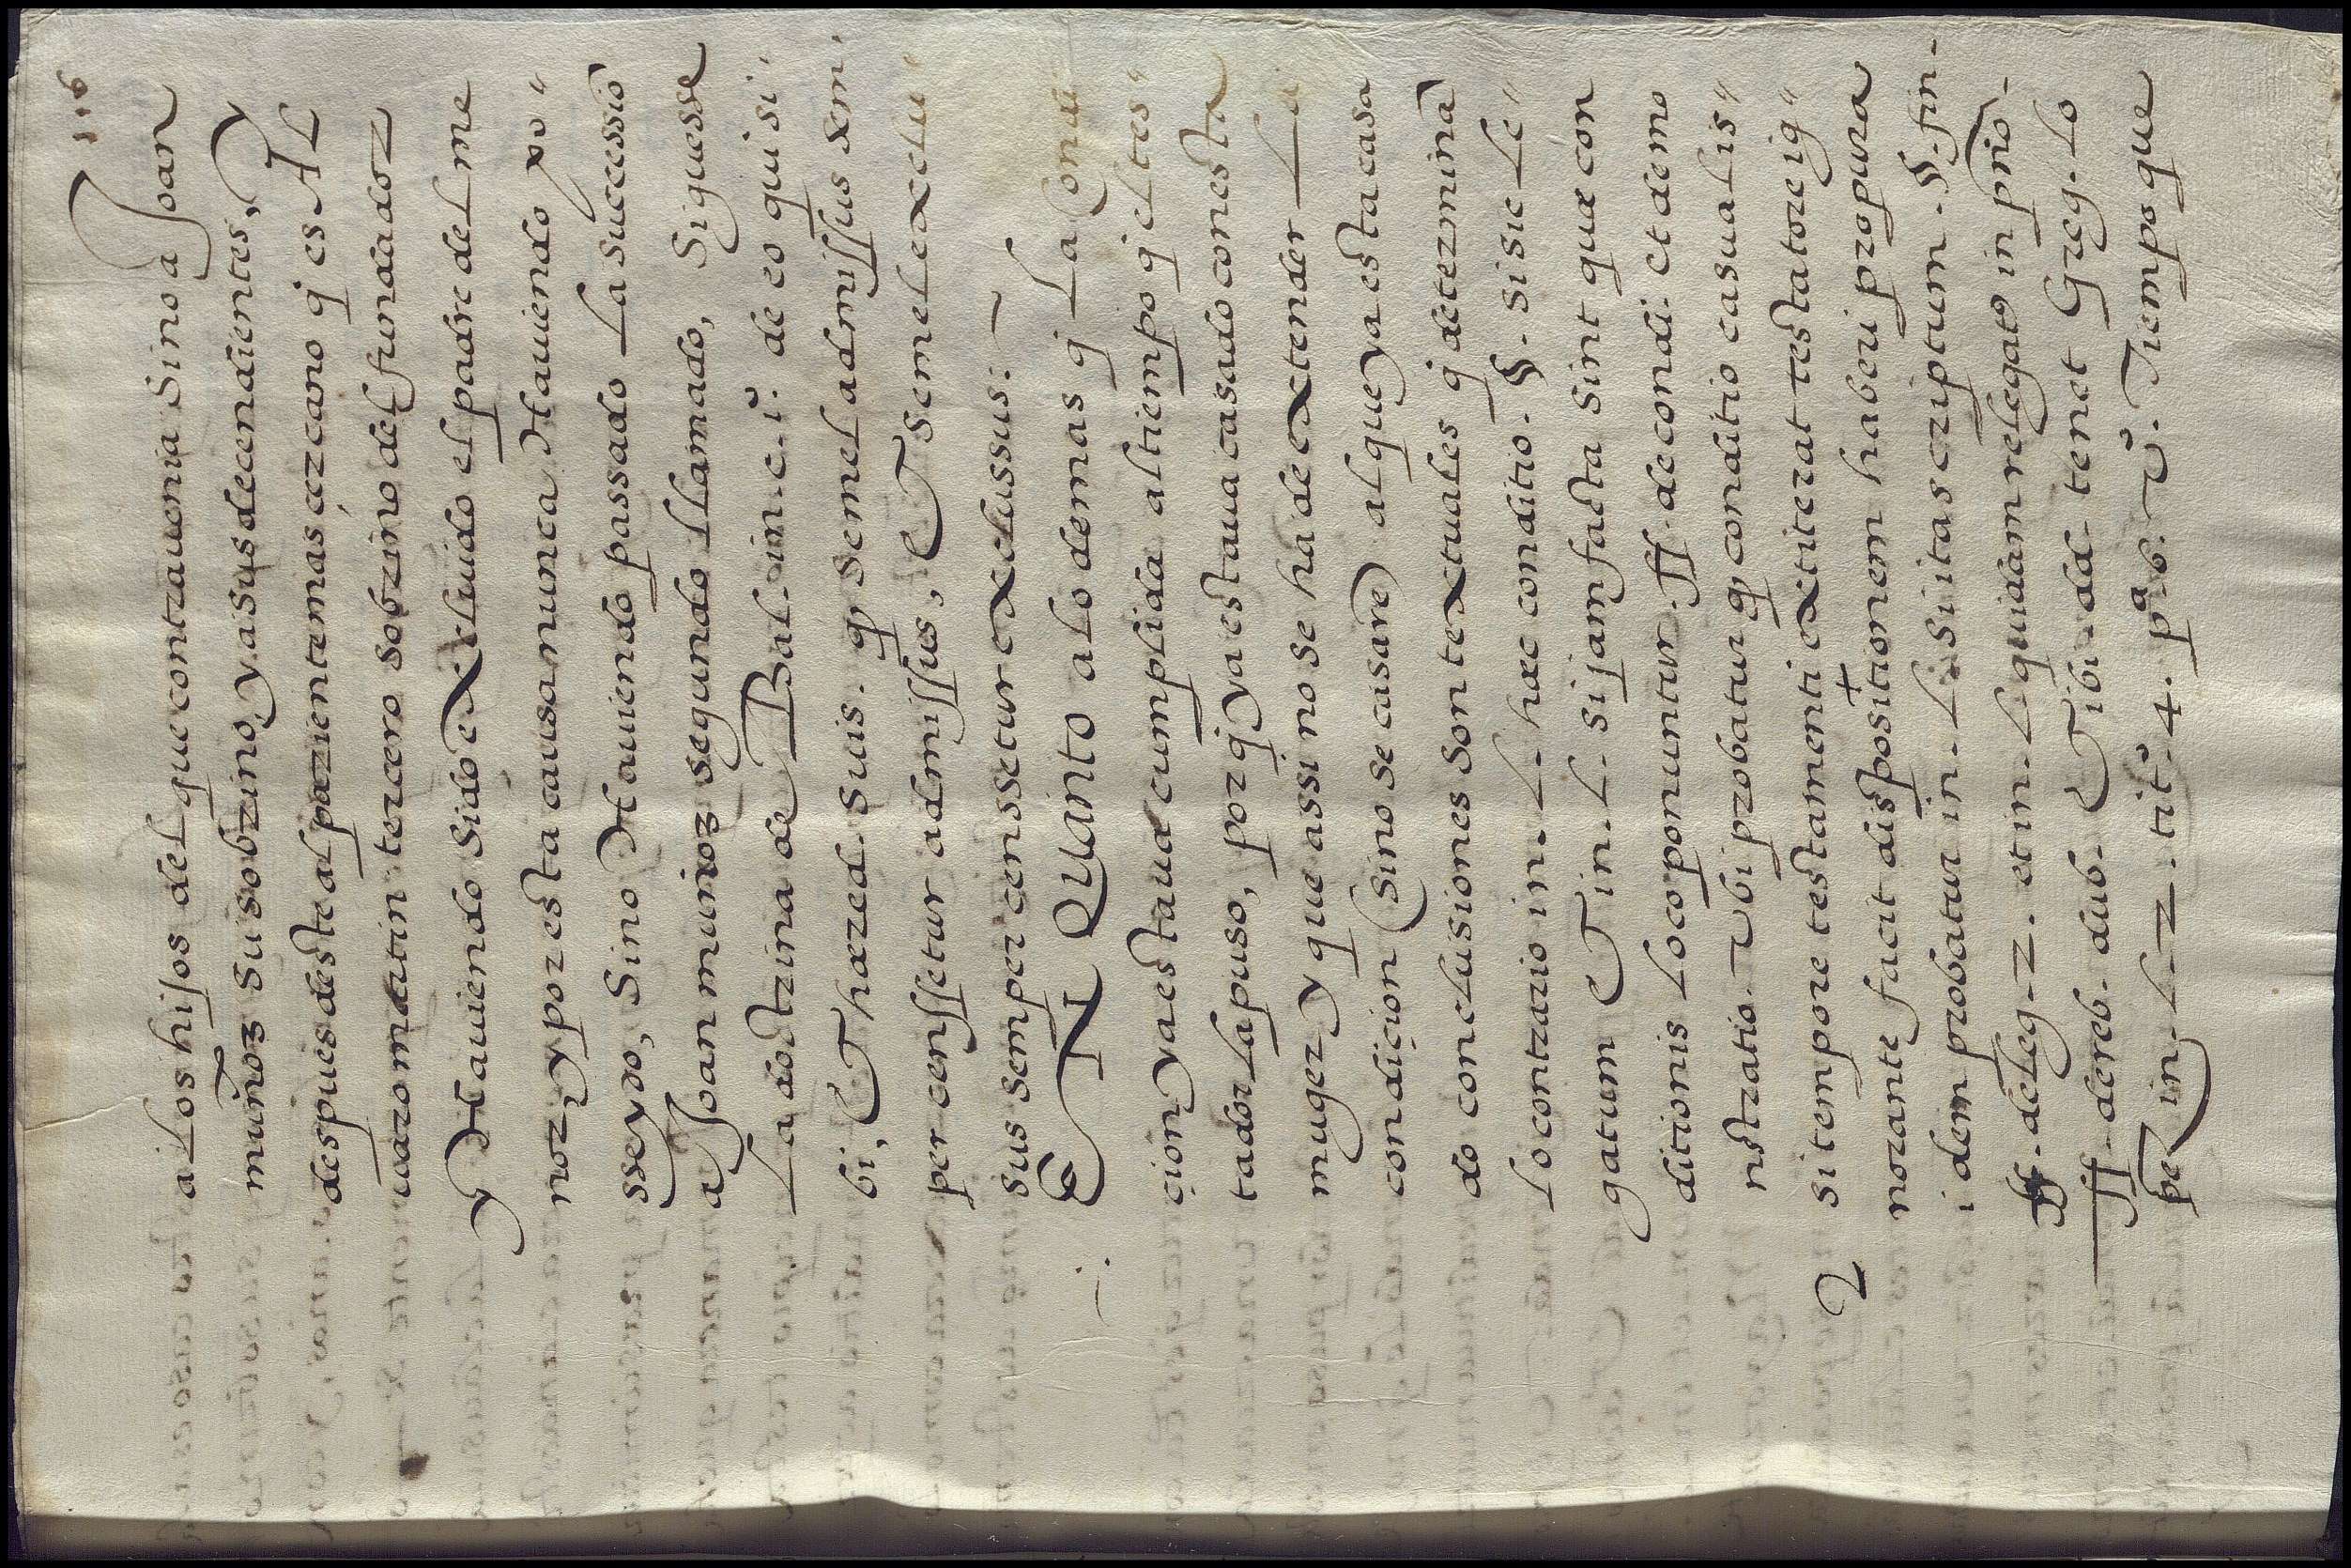 116
a los hijos del que contrauenia sino a Joan
muñoz su sobrino, y a sus decendientes, Y
despues deste al pariente mas çercano q̃ es Al
uaro martin tercero sobrino del fundador
Y Hauiendo sido excluido el padre del me
nor, y por esta causa nunca Hauiendo po"
sseydo, Sino Hauiendo passado La successio͂
a Joan muñoz segundo LLamado, Siguesse
La doctrina de Bal. in. c. i.º de eo qui si"
bi, Et hæred. suis. q̃ semel admissus sem"
per censsetur admissus, Et semel exclu"
sus semper censsetur exclussus:~
EN QUanto a lo demas q̃ La Condi
çion ya estaua cumplida al tiempo q̃ el tes"
tador La puso, por q̃ ya estaua casado con esta
muger y que assi no se ha de extender La
condiçion (sino se casare) al que ya esta casa
do conclusiones son textuales q̃ determina͂
Lo contrario in. L. hæc conditio. §. si sic Le"
gatum Et in. L. si jam facta sint quæ con
ditionis Loco ponuntur. ff. de condi. et demo
nstratio. Vbi probatur q̃ conditio casualis"
si tempore testamenti extiterat testatore ig"
2 norante facit dispositionem haberi pro pura
idem probatur in. L. si ita scriptum. §. fin-
ff. de leg. 2. et in. L. quidam relegato in prio͂-
ff. de reb. dub. Et ibi. dd. tenet Greg. Lo
pe in. L. 2. tit.º 4. p.ª 6. v.º Tiempo que